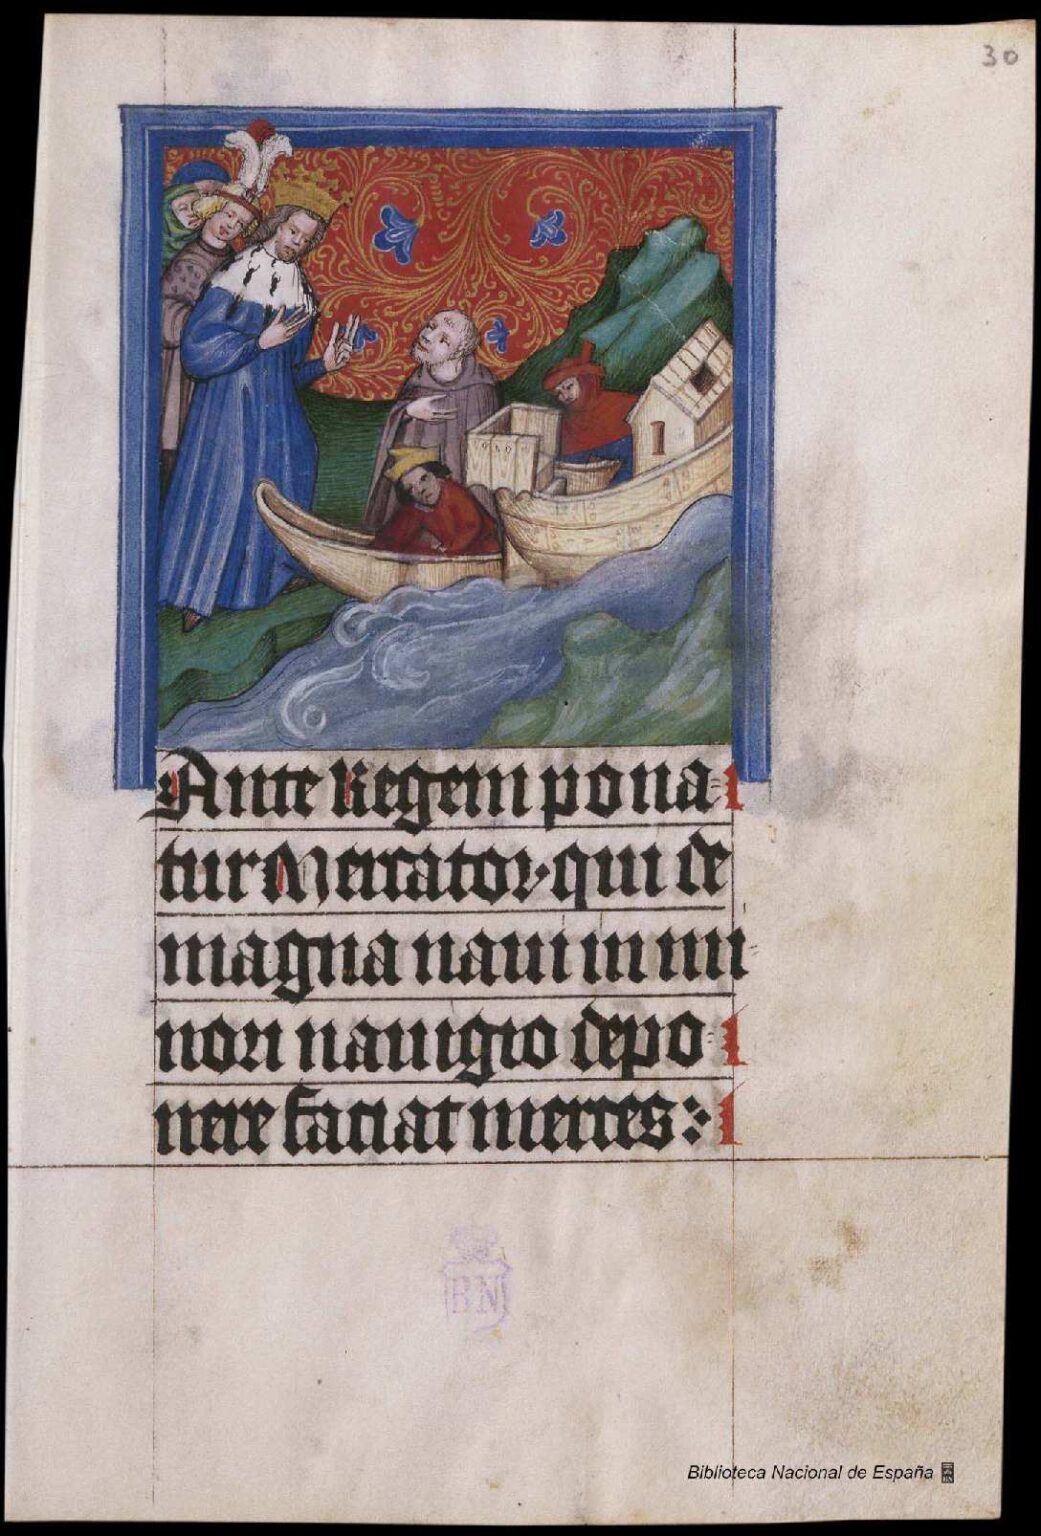 30
Ante Regem pona
tur Mercator. qui de
magna naui in mi
nori nauigio depo
nere faciat merces:
BN
Biblioteca Nacional de España